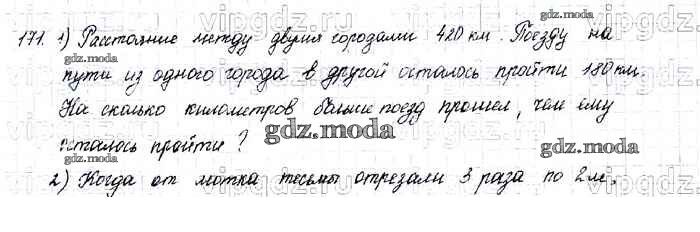 171. 1) Расстояние между двумя городами 420 км. Поезду на
пути из одного города в другой осталось пройти 180 км.
На сколько километров больше поезд прошел, чем ему
осталось пройти?
2) Когда от мотка тесьмы отрезали 3 раза по 2 м,
gdz.moda
vipgdz.ru